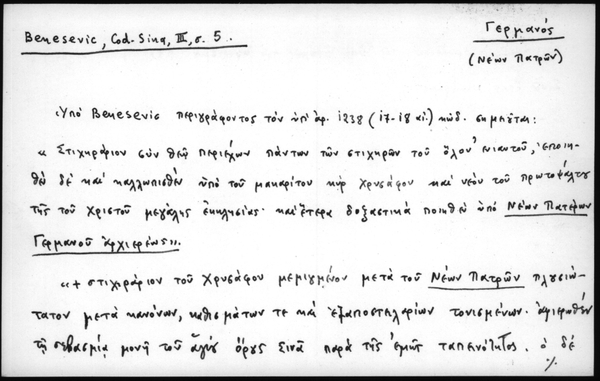 Benesevic, Cod. Sina, III, σ. 5.
Γερμανός
(Νέων Πατρῶν)
Ὑπό Benesevic περιγράφοντος τόν ὑπ' ἀρ. 1238 (17-18 αἰ.) κώδ. σημειοῦται:
« Στιχηράριον σύν θεῷ περιέχων πάντων τῶν στιχηρῶν τοῦ ὅλου ἐνιαυτοῦ, ἐποιη-
θέν δέ καί καλλωπισθέν ὑπό τοῦ μακαρίτου κύρ Χρυσάφου καί νέου τοῦ πρωτοψάλτου
τῆς τοῦ Χριστοῦ μεγάλης ἐκκλησίας· καί ἕτερα δοξαστικά ποιηθέν ὑπό Νέων Πατέρων
Γερμανοῦ ἀρχιερέως».
«+ στιχιράριον τοῦ Χρυσάφου μεμιγμένον μετά τοῦ Νέων Πατρῶν πλησιέ-
τατον μετά κανόνων, καθισμάτων τε καί ἐξαποστειλαρίων τονισμένων. ἀφιερωθέν
τῇ σεβασμίᾳ μονῇ τοῦ ἁγίου ὄρους Σινᾶ παρά τῆς ἐμῆς ταπεινότητος. ὁ δέ
./.